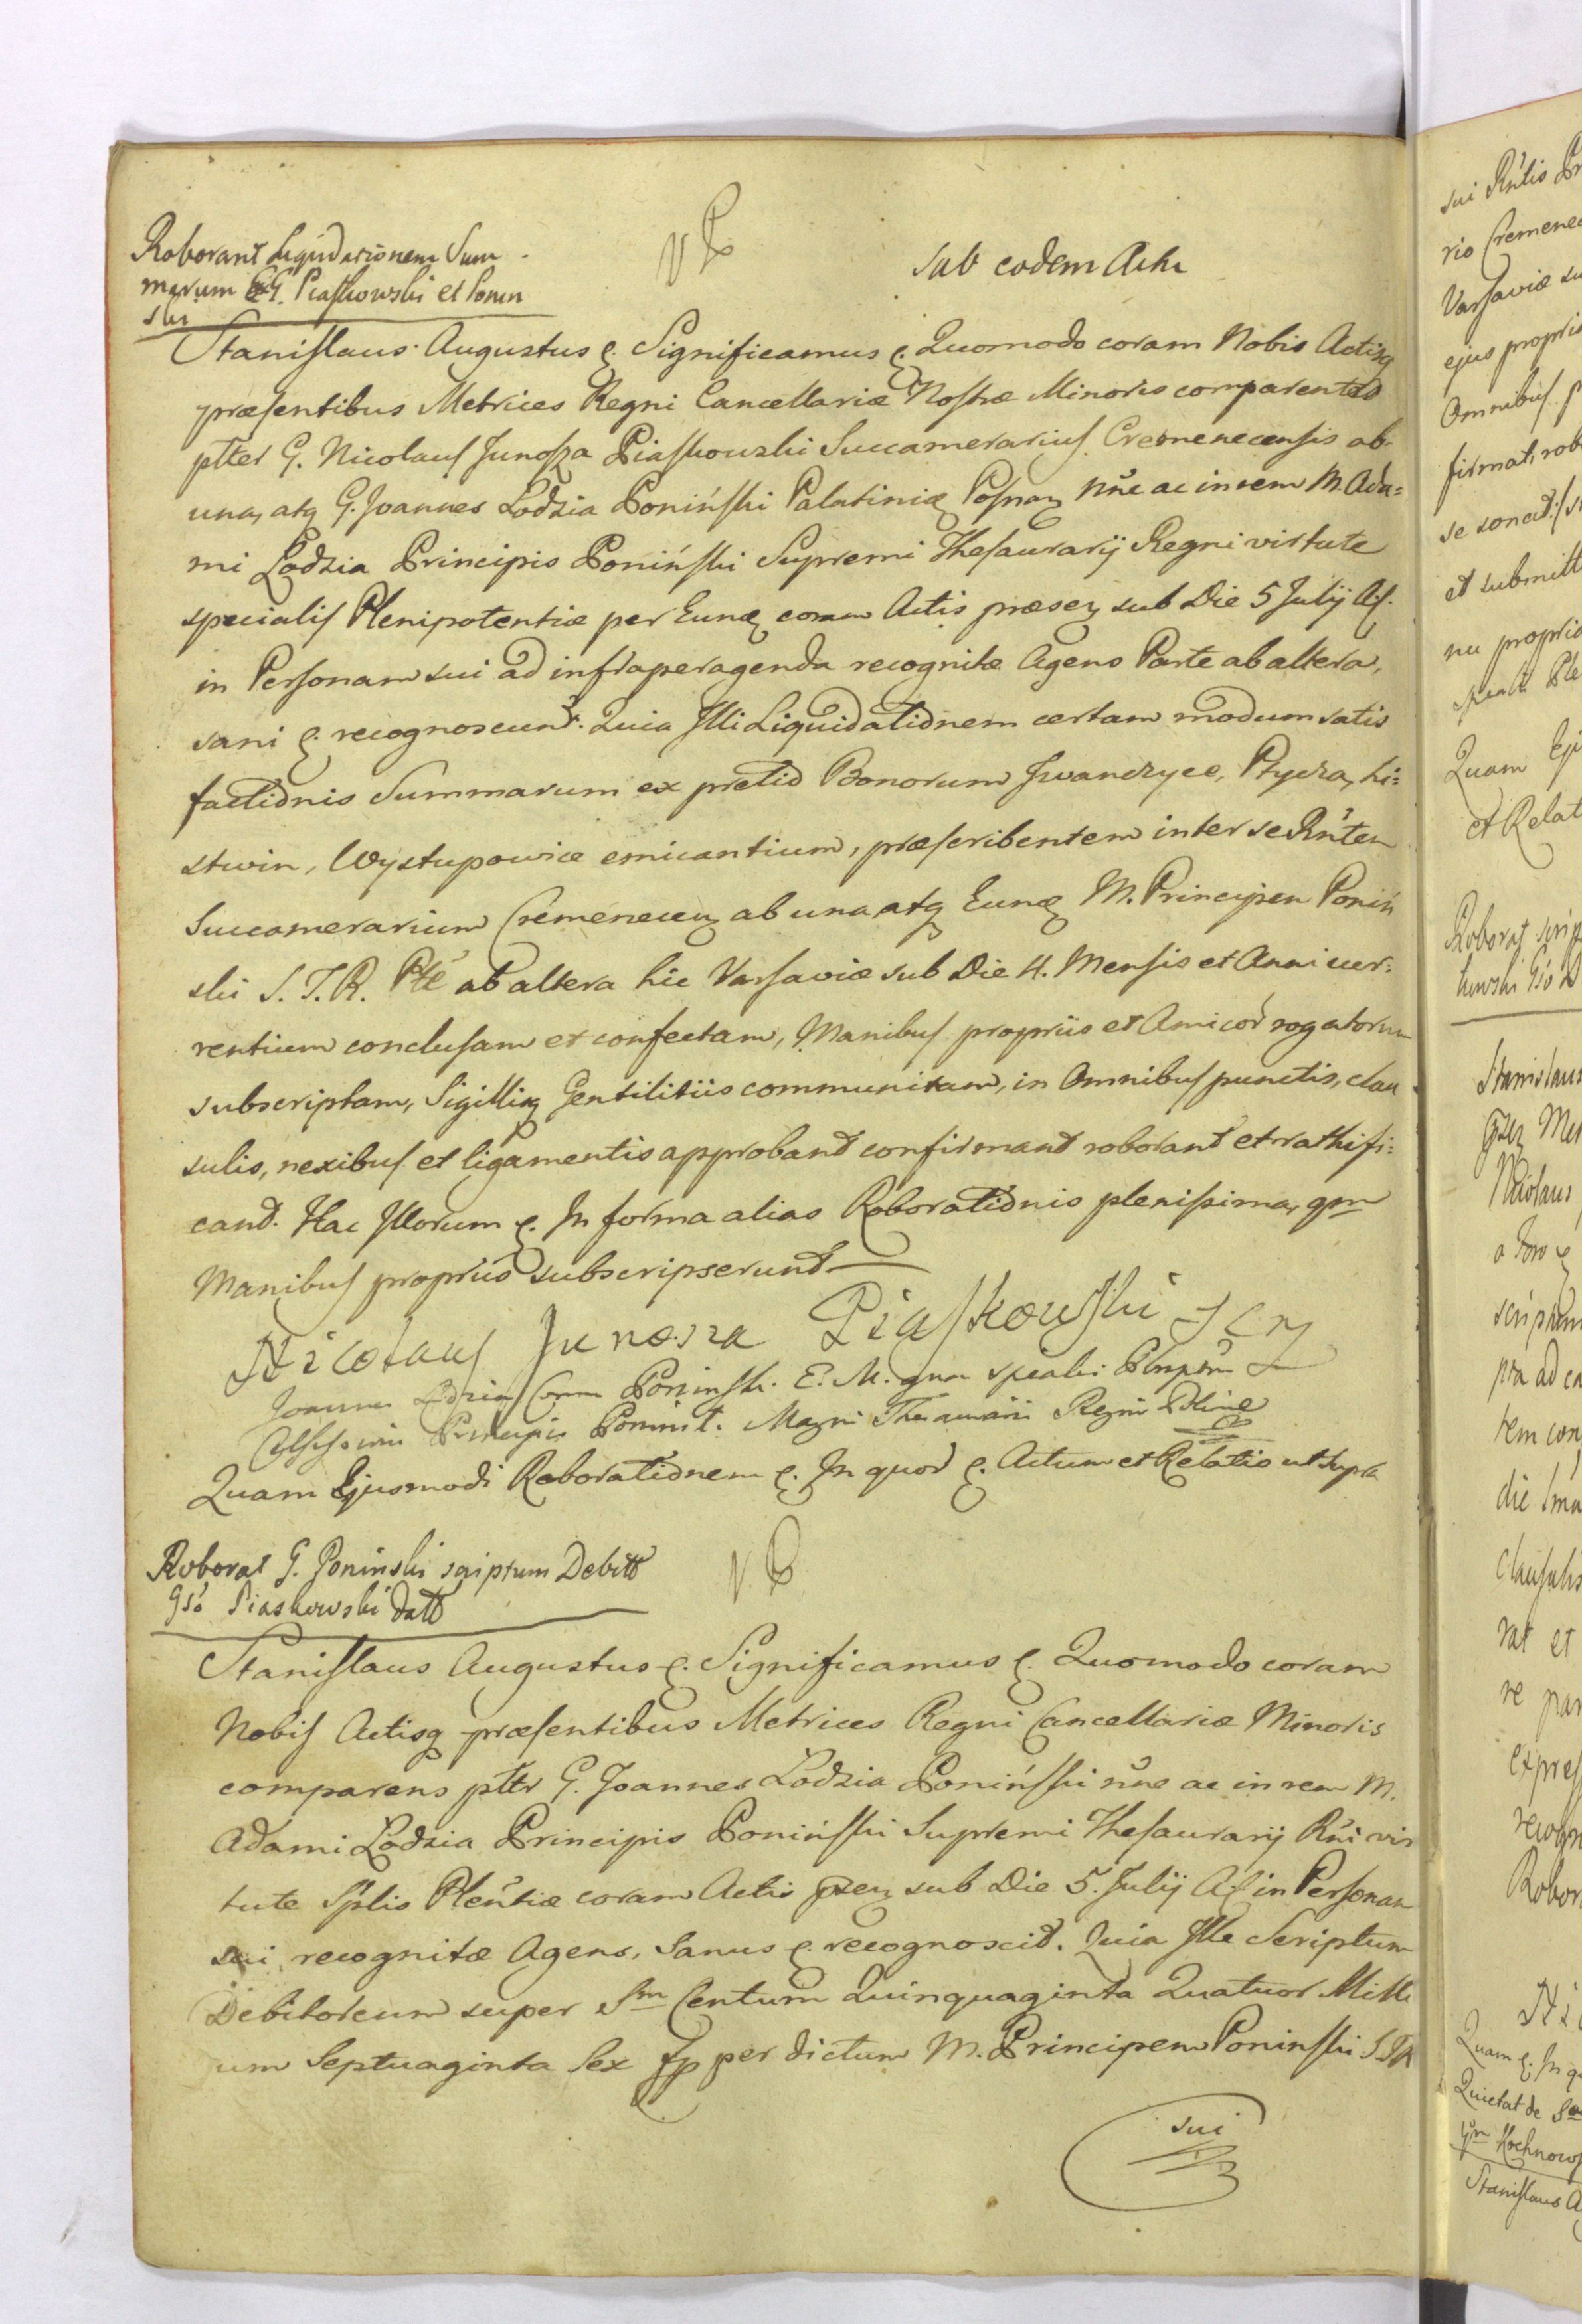 Roborant Liquidationem Sum-
marum GG. Piaskowski et Ponin
ski
sub eodem Actu
Stanislaus Augustus &. Significamus &. Quomodo coram Nobis Actisq
præsentibus Metrices Regni Cancellariæ Nostræ Minoris comparentes
ptter G. Nicolaus Junosza Piaskowski Succamerarius Cremenecensis ab
una, atq G. Joannes Lodzia Poniński Palatiniæ Posnaņ nñe ac in rem M. Ada=
mi Lodzia Principis Poniński Supremi Thesaurarij Regni virtute
specialis Plenipotentiæ per Eunđ coram Actis præseņ sub Die 5 Julij A.f.
in Personam sui ad infraperagenda recognitæ Agens Parte ab altera,
sani &. recognoscunt. Quia Illi Liquidationem certam modum satis
factionis Summarum ex pretio Bonorum Iwanczyce, Ptycza, Li=
stwin, Wystupowice emicantium, præscribentem inter se Rñtem
Succamerarium Cremeneceņ ab una atq Eunđ M. Principem Poniń
ski S. T. R. Pte ab altera hic Varsaviæ sub Die 4. Mensis et Anni cur=
rentium conclusam et confectam, Manibus propriis et Amicor̃ rogatorum
subscriptam, Sigillisq Gentilitiis communitam, in Omnibus punctis, clau
sulis, nexibus et ligamentis approbant confirmant roborant et rathifi=
cant. Hac Illorum &. In forma alias Roborationis plenissima, qm
Manibus propriis subscripserunt
Nicolaus Junosza Piaskowski SCrz
Joannes Lodzia Comes Poninski. E. M. qua spealis Plnptns
Celsissimi Principis Poninsk. Magni Thesaurarii Regni Polniæ
Quam Ejusmodi Roborationem &. In quor &. Actum et Relatio ut supra
Roborat G. Poninski scriptum Debitt
Gso Piaskowski datt
Stanislaus Augustus &. Significamus &. Quomodo coram
Nobis Actisq præsentibus Metrices Regni Cancellariæ Minoris
comparens ptter G. Joannes Lodzia Poniński nñe ac in rem M.
Adami Lodzia Principis Poniński Supremi Thesaurarij Rñi vir
tute Splis Plentiæ coram Actis pseņ sub Die 5. Julij A.f. in Personam
sui recognitæ Agens, Sanus &. recognoscit. Quia Ille Scriptum
Debitoreum super Sm Centum Quinquaginta Quatuor Milli
um Septuaginta Sex fp per dictum M. Principem Poninski S.T.R.
sui